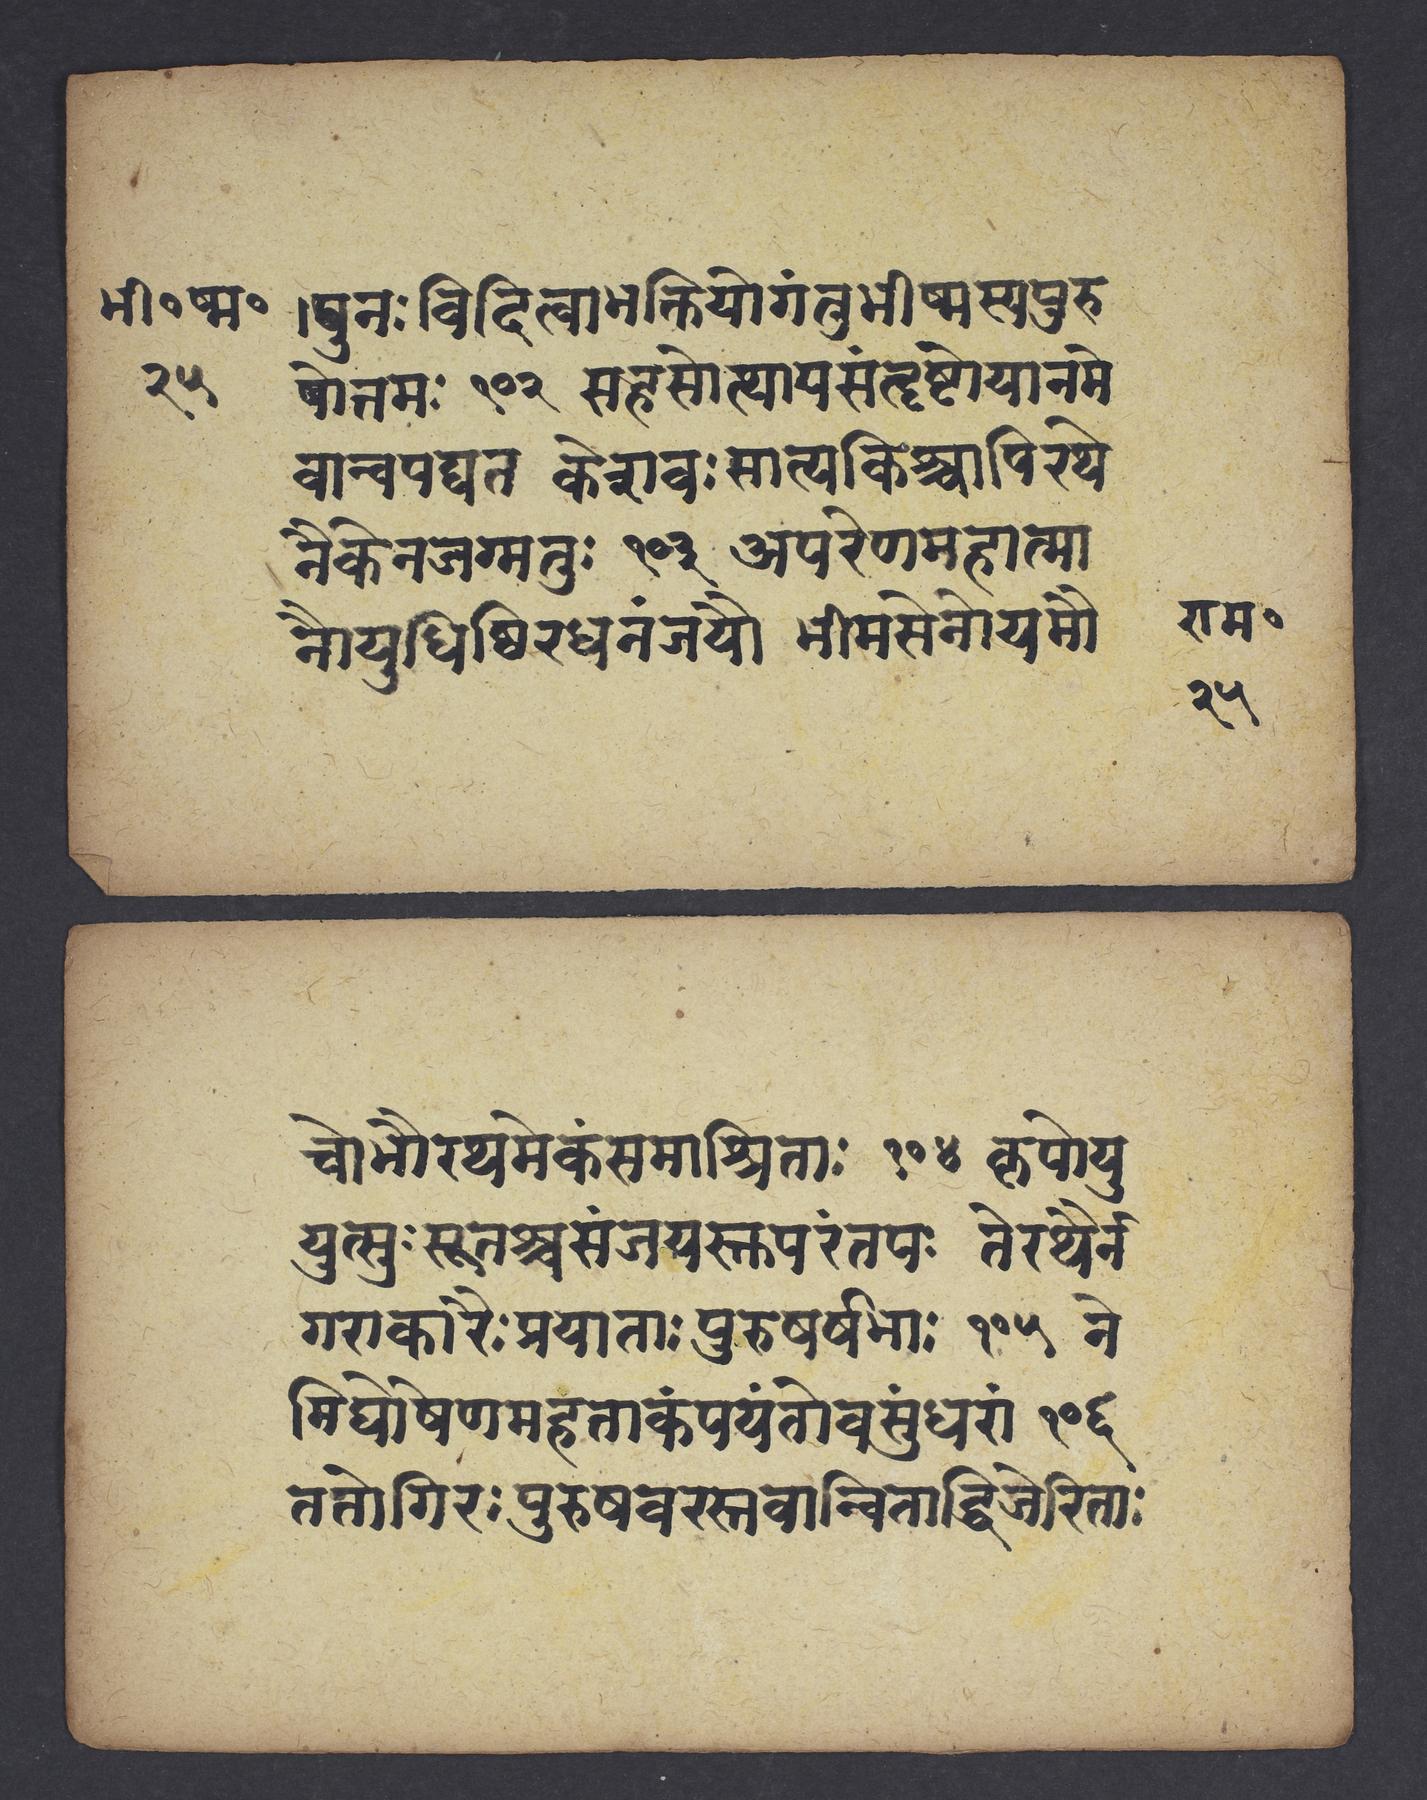 भी॰ष्म॰ ।पुनः विदित्वाभक्तियोगंतुभीष्मस्यपुरु
२५ षोत्तमः १०२ सहसोत्थायसंहृष्टोयानमे
वान्वपद्यत केशवः सात्यकिश्चापिरथे
नैकेनजग्मतुः १०३ अपरेणमहात्मा
नौयुधिष्ठिरधनंजयौ भीमसेनोयमौ राम॰
२५
चोभौरथमेकंसमाश्रिताः १०४ कृपोयु
युत्सुः सूतश्चसंजयस्तपरंतपः तेरथैर्न
गराकारैः प्रयाताः पुरुषर्षभाः १०५ ने
मिघोषेणमहताकंपयंतोवसुंधरां १०६
ततोगिरः पुरुषवरस्तवान्विताद्विजेरिताः